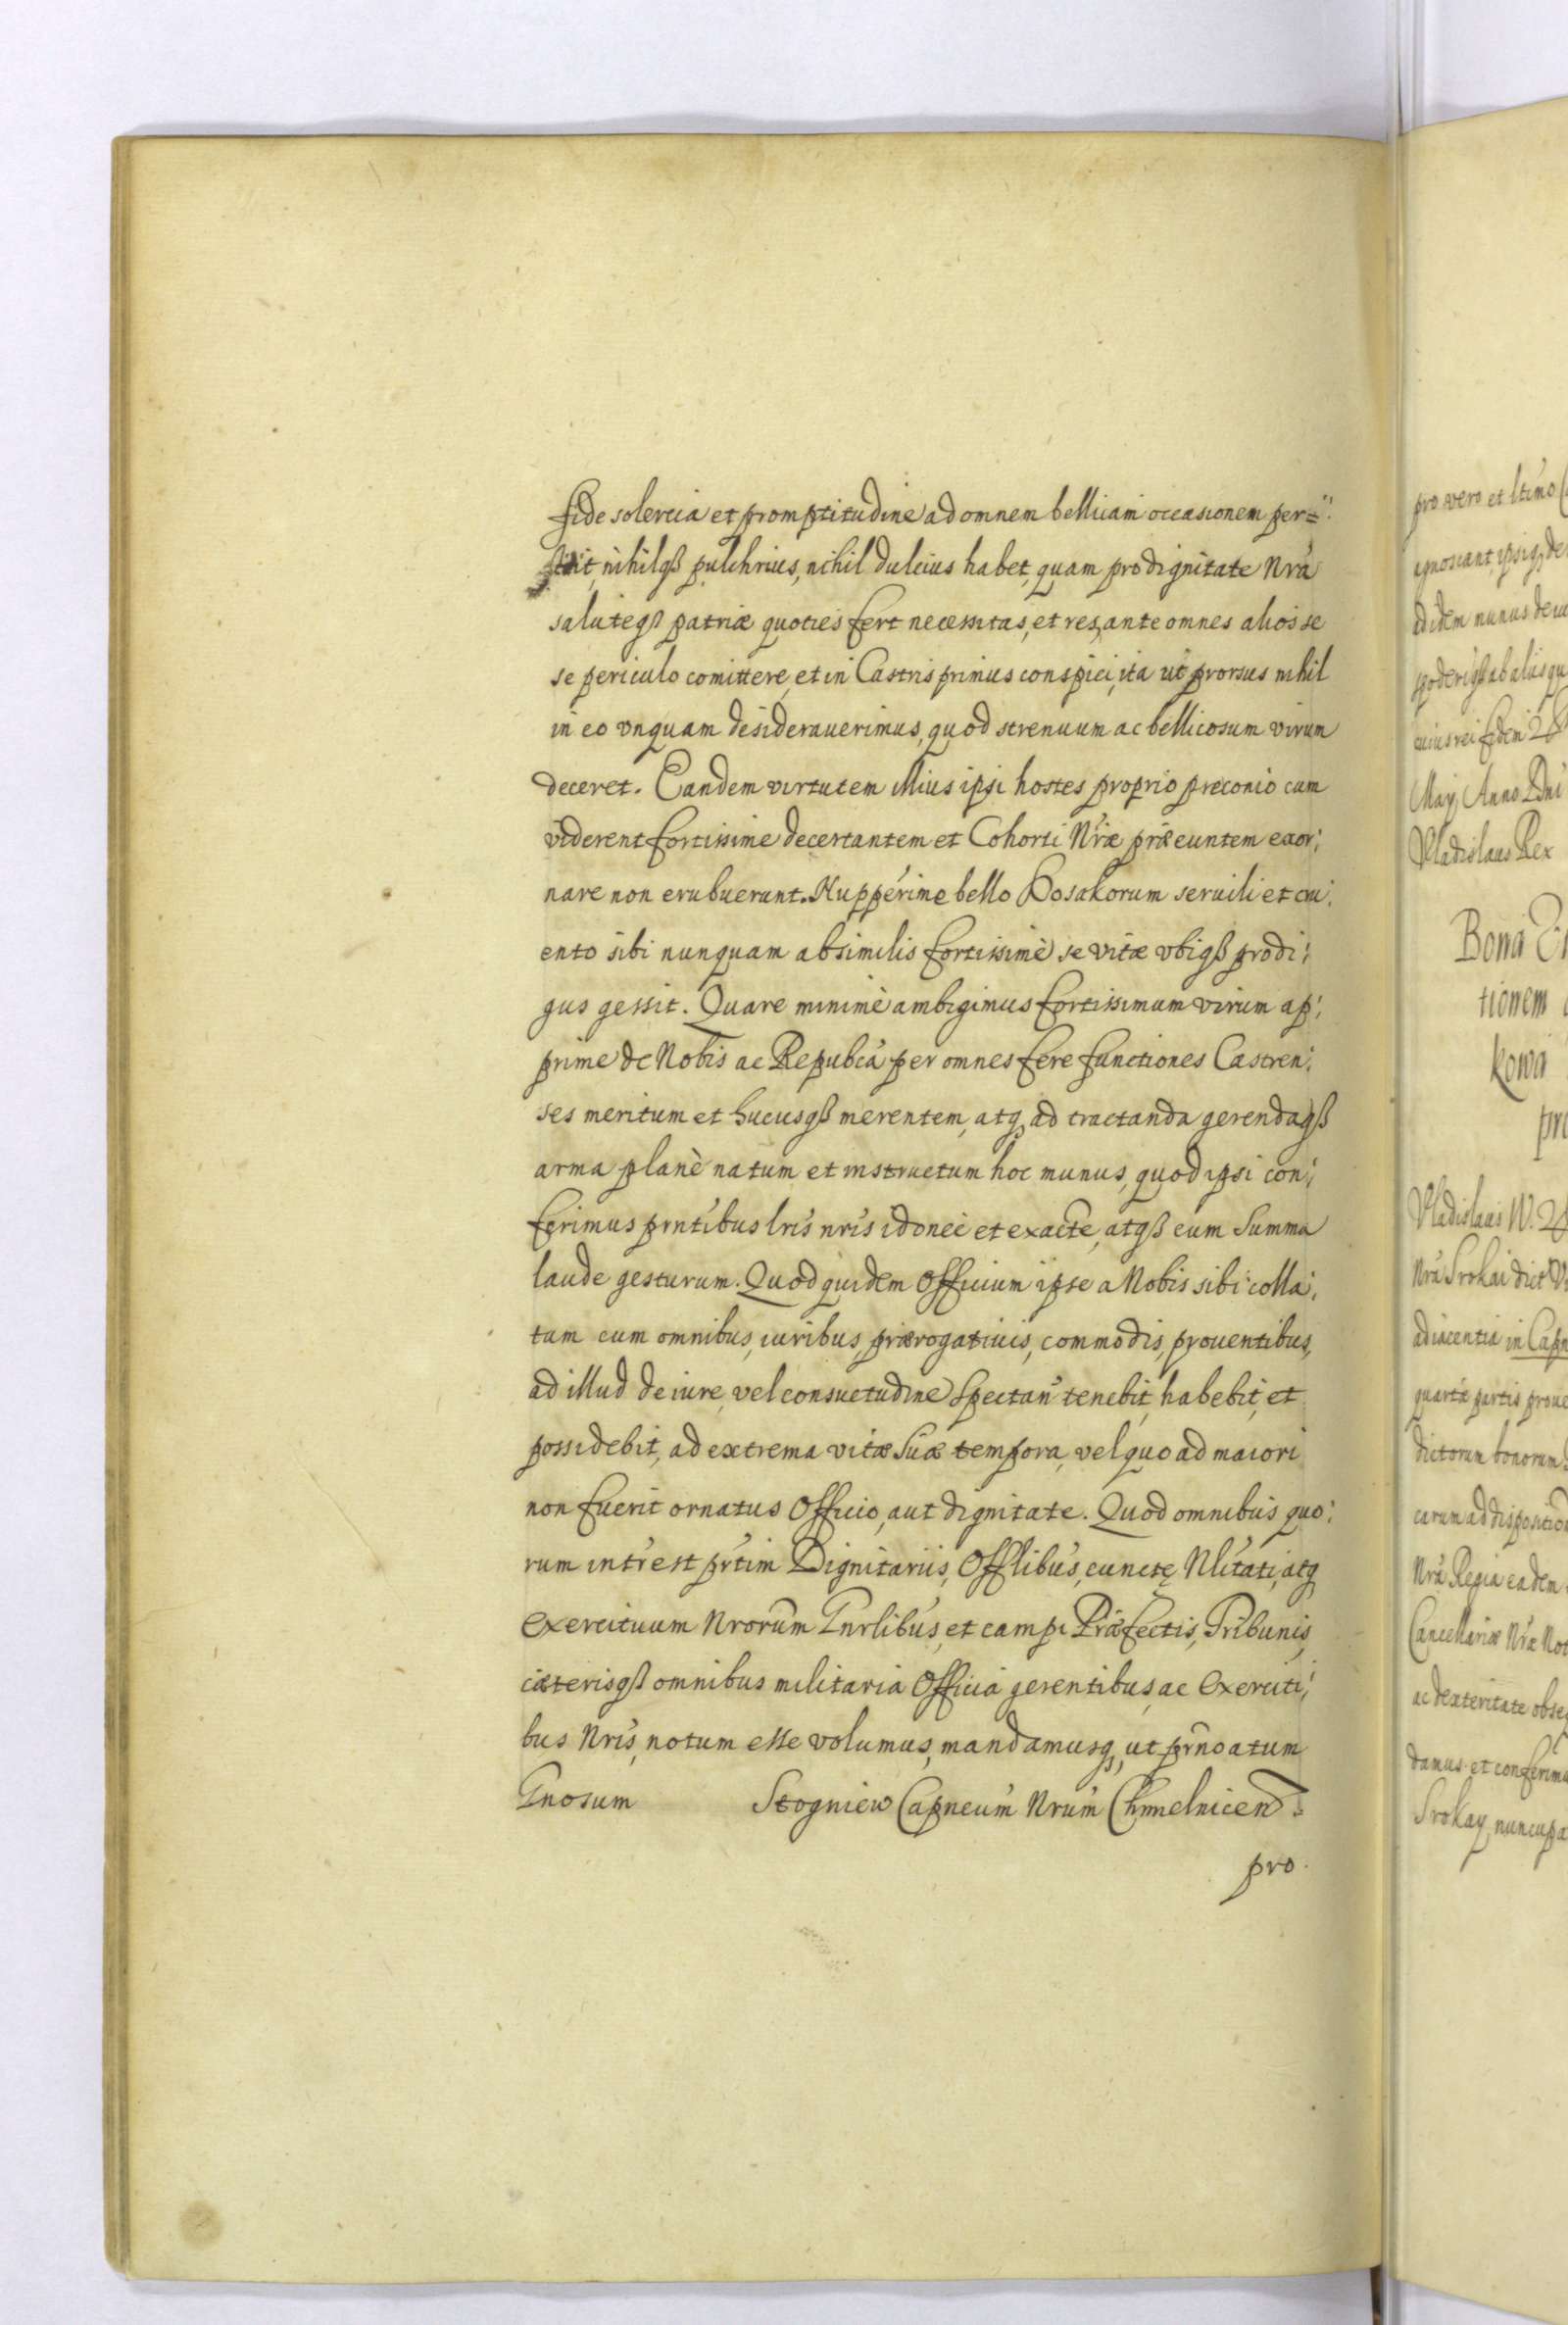 fide solercia et promptitudine ad omnem bellicam occasionem per=
stitit, nihilqß pulchrius, nihil dulcius habet, quam pro dignitate Nra
saluteqß patriæ quoties fert necessitas, et res, ante omnes alios se
se periculo comittere, et in Castris primus conspici, ita ut prorsus nihil
in eo vnquam desiderauerimus, quod strenuum ac bellicosum virum
deceret. Eandem virtutem illius ipsi hostes proprio preconio cum
viderent fortissime decertantem et Cohorti Nræ præeuntem exor:
nare non erubuerunt. Nupperime bello Kosakorum seruili et cru:
ento sibi nunquam absimilis fortissimè se vitæ vbiqß prodi:
gus gessit. Quare minimè ambigimus fortissimum virum ap:
prime de Nobis ac Repubca per omnes fere functiones Castren:
ses meritum et hucusqß merentem, atq ad tractanda gerendaqß
arma planè natum et instructum hoc munus, quod ipsi con:
ferimus prntibus lris nris idoneè et exacte, atqß cum Summa
laude gesturum. Quod quidem Officium ipse a Nobis sibi colla:
tum cum omnibus, iuribus, prærogatiuis, commodis, prouentibus,
ad illud de iure, vel consuetudine Spectan tenebit, habebit, et
possidebit, ad extrema vitæ Suæ tempora, vel quo ad maiori
non fuerit ornatus Officio, aut dignitate. Quod omnibus quo:
rum intrest prtim Dignitariis, Offlibus, cunctę Nlitati, atq
Exercituum Nrorum Gnrlibus, et campi Præfectis, Tribunis,
cæterisqß omnibus militaria Officia gerentibus, ac Exerciti:
bus Nris, notum esse volumus, mandamusq, ut prnoatum
Gnosum Stogniew Capneum Nrum Chmelnicen
pro.
pro vero et ltimo
agnoscant, ipsiq, de
ad idem munus
ab aliis qu
cuius rei fidem
May Anno Dni
Vladislaus Rex
Bona
tionem
kowa
pro
Vladislaus IV.
Nra Srokai dict
adiacentia in Capn
quartæ partis proue
dictorum bonorum
earum ad disposition
Nra Regia eadem
Cancellariæ Nræ Not
ac dexteritate obse
damus et conferim
Srokay, nuncupa